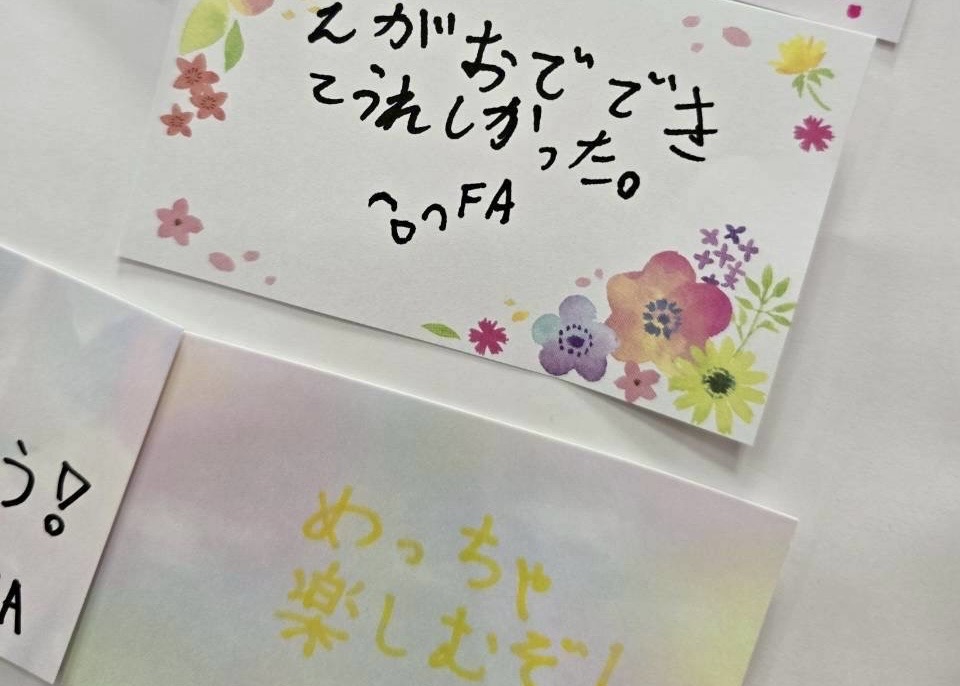 えがおででき
てうれしかった。
FA
う!
A
めっちゃ
楽しむぞ!